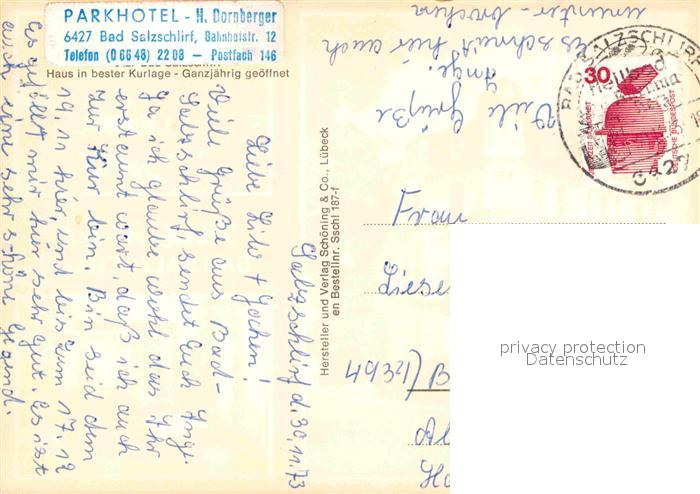 PARKHOTEL - H. Dornberger
6427 Bad Salzschlirf, Bahnhofstr. 12
Telefon (0 66 48) 22 08 — Postfach 146
Haus in bester Kurlage - Ganzjährig geöffnet
Salzschlirf d. 30.11.73
Liebe Lilo + Jochen!
Viele Grüße aus Bad-
Salzschlirf sendet Euch Inge.
Ja ich glaube wohl das Ihr
erstaunt wart, daß ich auch
zur Kur bin. Bin seid dem
19.11 hier, und bis zum 17.12
Es gefällt mir hier sehr gut. Es ist
auch eine sehr schöne Gegend.
Viele Grüße
Inge.
Es schneit hier auch
ununter-brochen
Hersteller und Verlag Schöning & Co., Lübeck
en Bestellnr. Sschl 187-f
30
DEUTSCHE BUNDESPOST
BAD SALZSCHLIRF
Heilbad
6427
Frau
Liese
(B
Al
Ha
privacy protection
Datenschutz